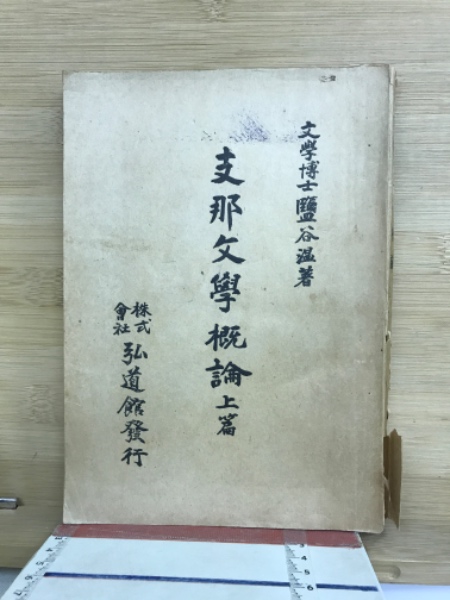 文學博士鹽谷溫著
支那文學概論上篇
株式會社弘道館發行
6
5
6